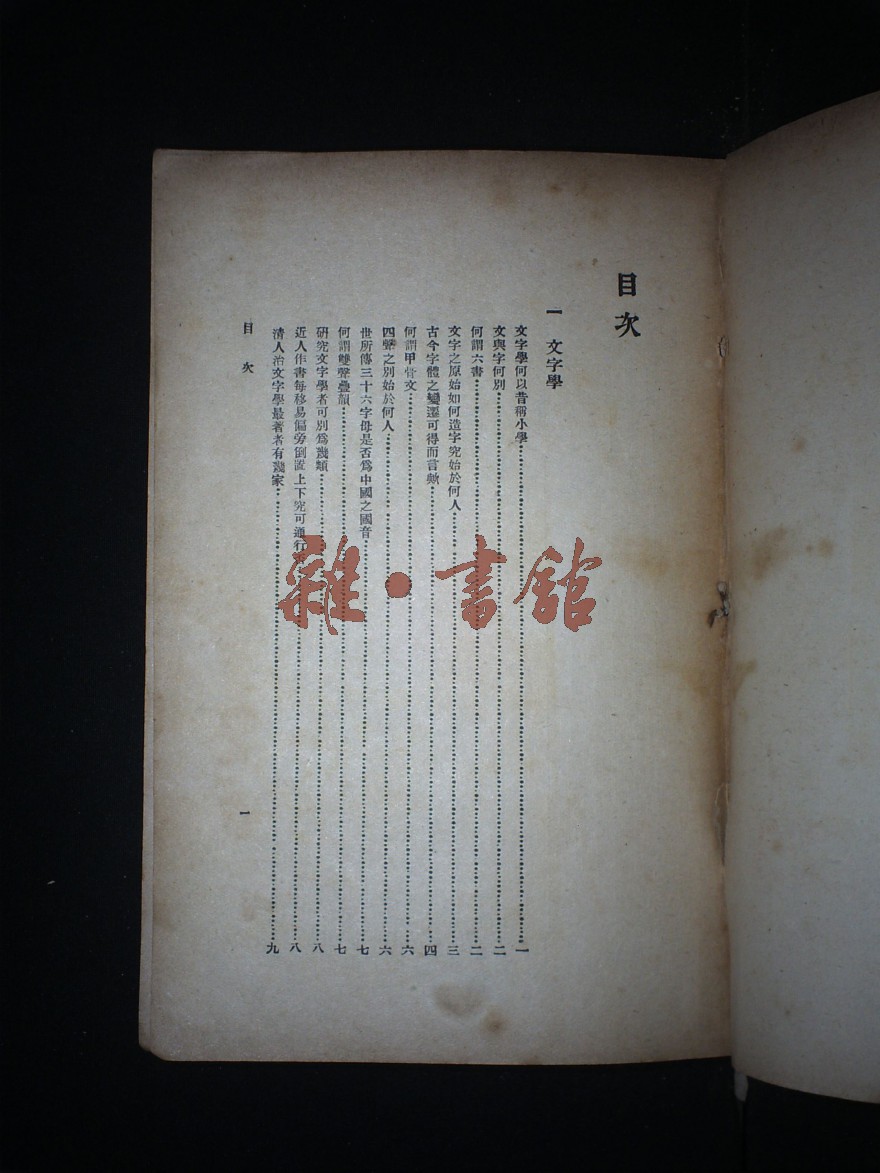 目次
一 文字學
文字學何以昔稱小學…………一
文與字何別…………二
何謂六書…………二
文字之原始如何造字究始於何人…………三
古今字體之變遷可得而言歟…………四
何謂甲骨文…………六
四聲之別始於何人…………六
世所傳三十六字母是否爲中國之國音…………七
何謂雙聲疊韻…………七
研究文字學者可別爲幾類…………八
近人作書每移易偏旁倒置上下究可通行…………八
清人治文字學最著者有幾家…………九
目次
一
雜·書館